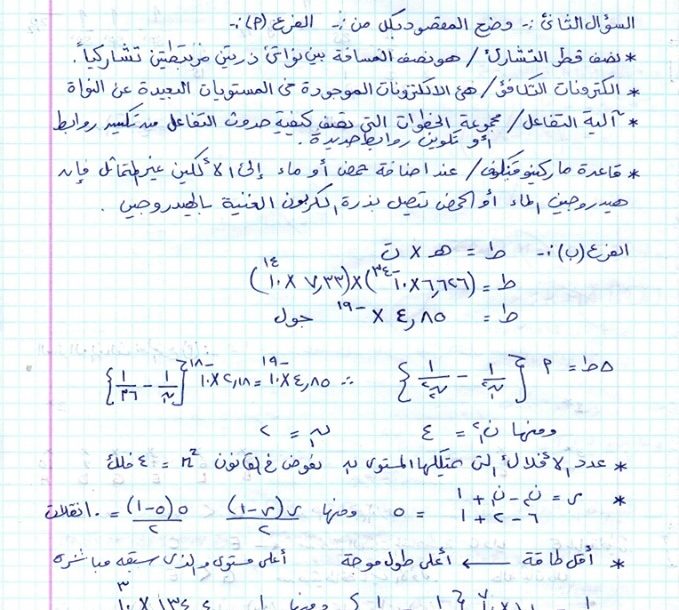 السؤال الثاني :- وضح المقصود بكل من :- الفرع (أ) :-
* نصف قطر التشاركي / هو نصف المسافة بين نواتي ذرتين مرتبطتين تشاركياً .
* الكترونات التكافؤ / هي الالكترونات الموجودة في المستويات البعيدة عن النواة
* آلية التفاعل / مجموعة الخطوات التي تصف كيفية حدوث التفاعل من تكسير روابط
أو تكوين روابط جديدة .
* قاعدة ماركينوفنكوف / عند اضافة حمض أو ماء إلى الألكين غير متماثل فإنه
هيدروجين الماء أو الحمض تتصل بذرة الكربون الغنية بالهيدروجين .
الفرع (ب) :- ط = هـ × ت
ط = (٦,٦٢٦ × ١٠^-٣٤) × (٧,٣٣ × ١٠^١٤)
ط = ٤,٨٥ × ^-١٩ جول
Δط = أ { ١/ن٢ - ١/ن٢ } ∴ ٤,٨٥ × ١٠^-١٩ = ٢,١٨ × ١٠^-١٨ { ١/ن٢ - ١/٣٦ }
ومنها ن٢ = ٤ ن = ٢
* عدد الأفلاك التي يمتلكها المستوى نعوض في القانون n² = ٤ فلك
* س = ن - ن + ١
٦ - ٢ + ١ = ٥ ومنها س(س-١)/٢ = ٥(٥-١)/٢ = ١٠ انتقلات
* أقل طاقة ← أعلى طول موجة أعلى مستوى والذي سبقه مباشرة